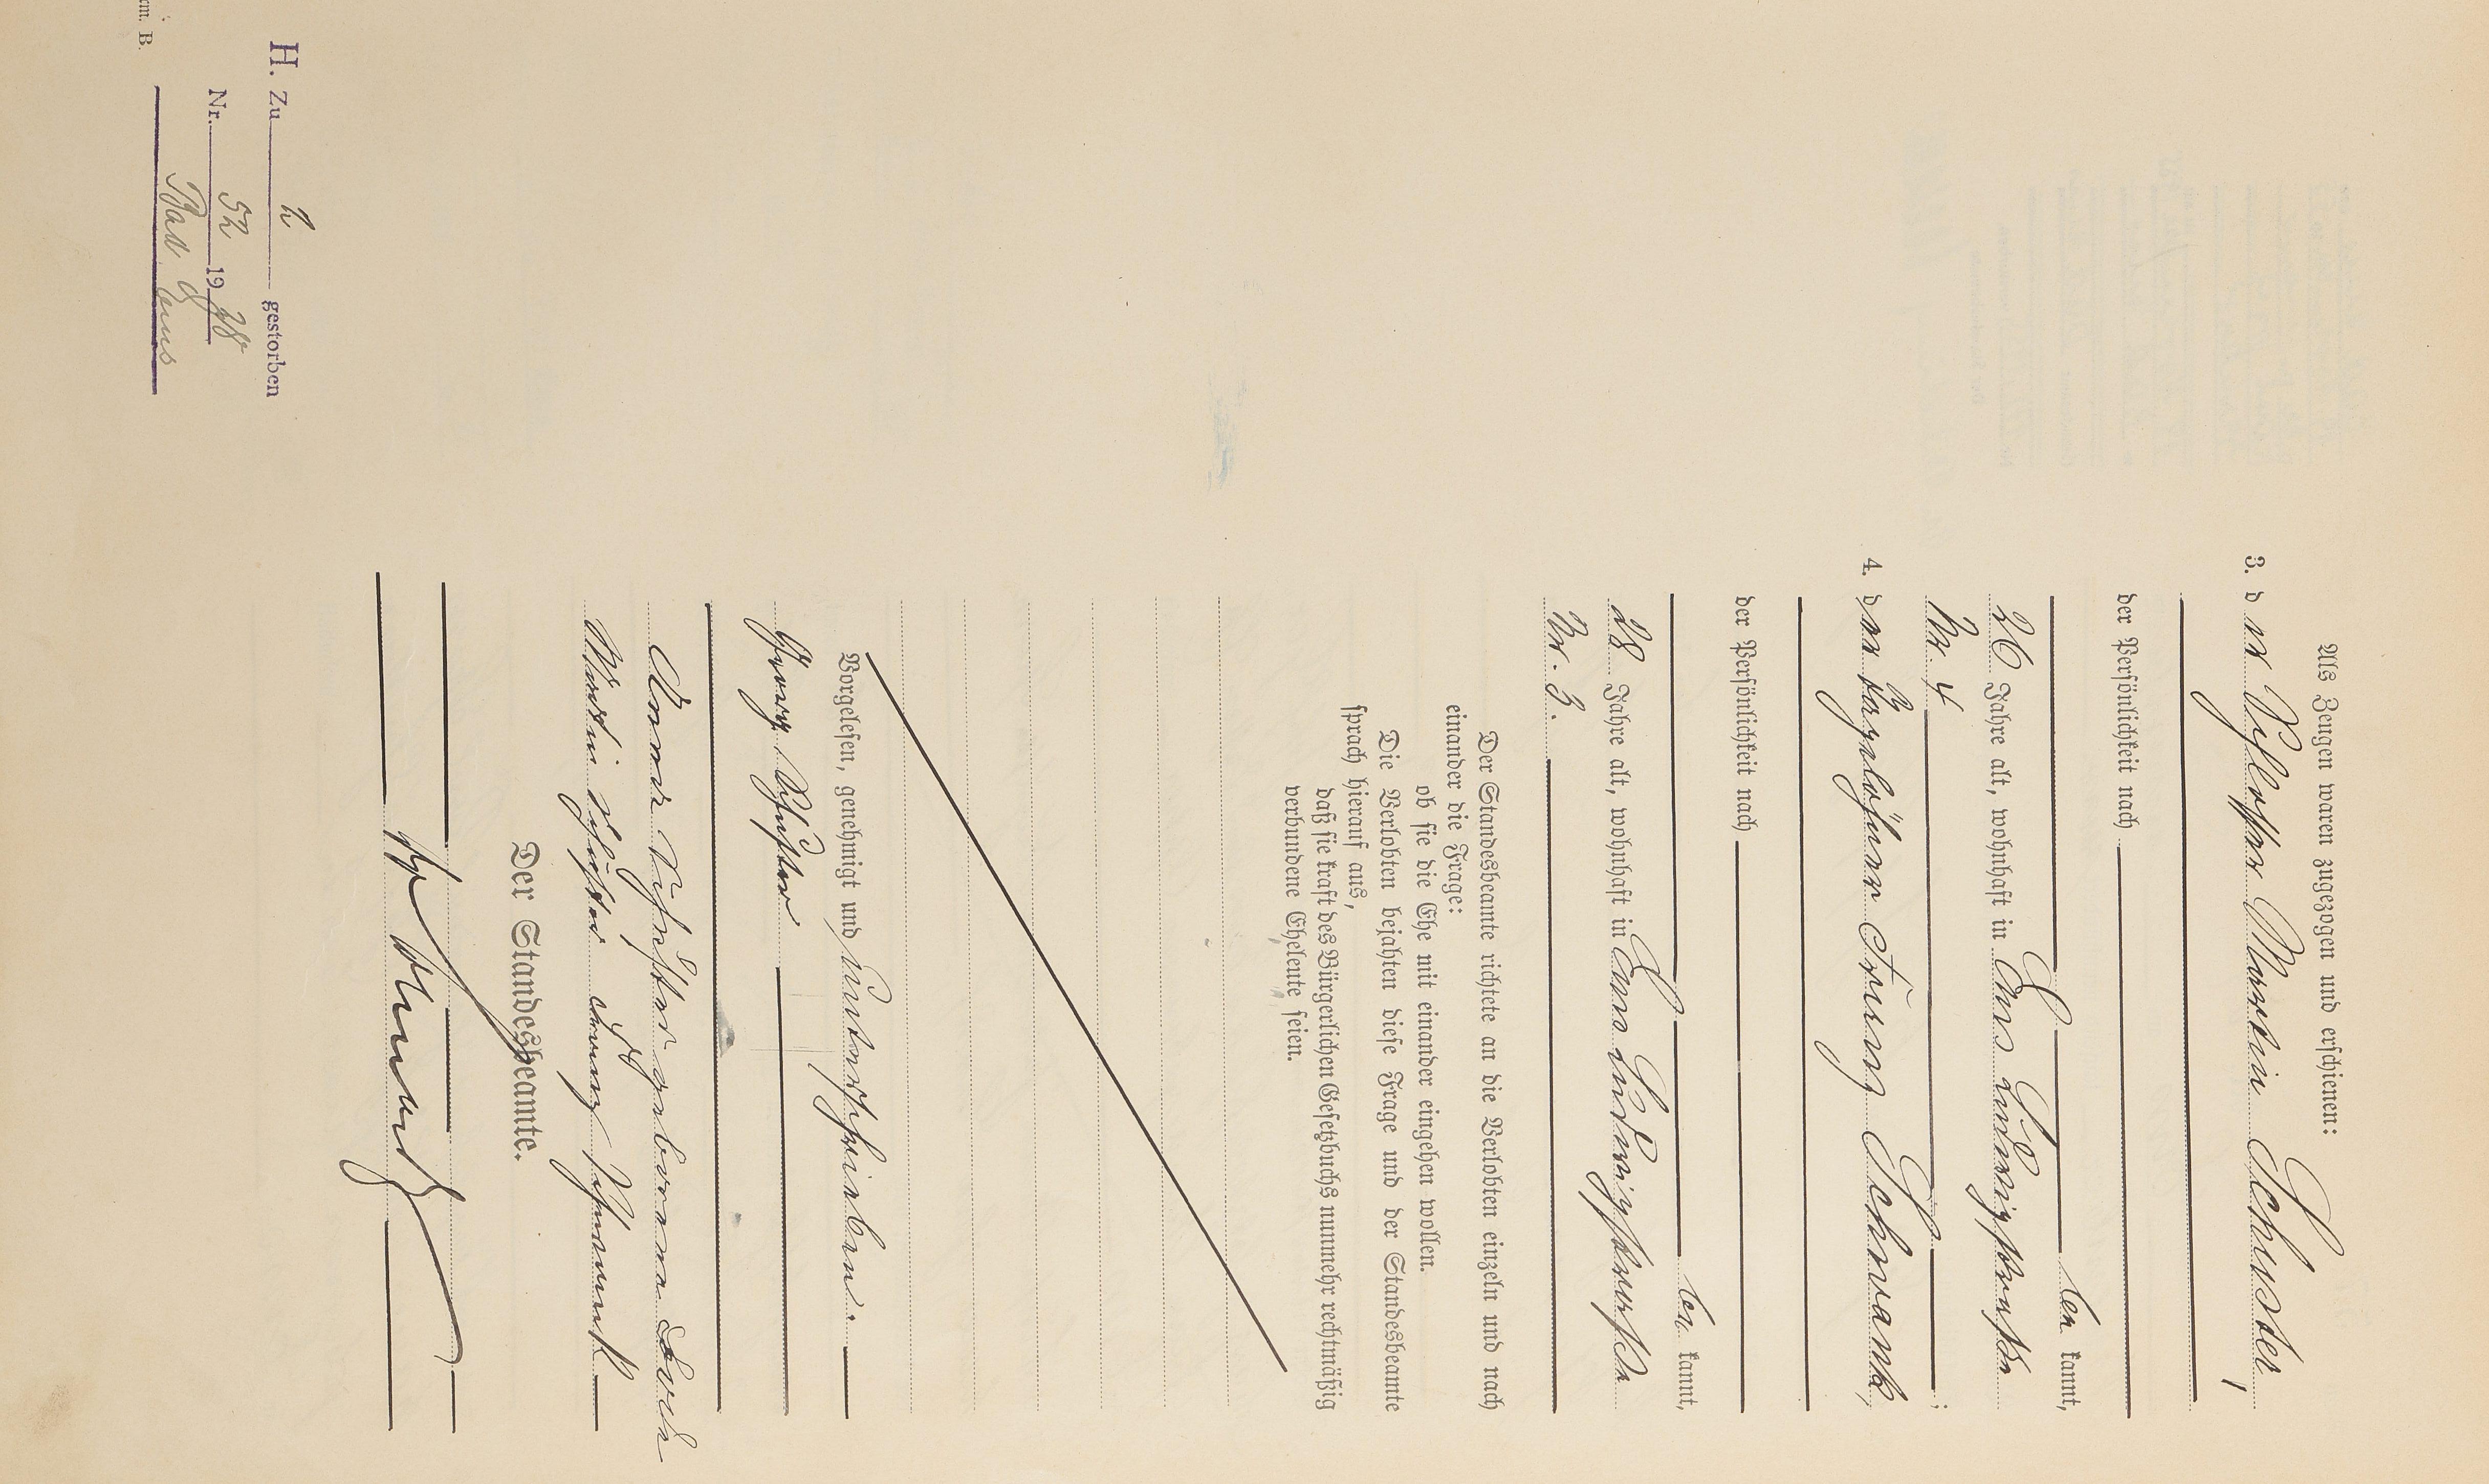 Als Zeugen waren zugezogen und erschienen:
3. der Schlosser Martin Schuster,
der Persönlichkeit nach
be kannt,
26 Jahre alt, wohnhaft in Ems Ludwigstraße
Nr. 4 ;
4. der Tagelöhner Franz Schwank,
der Persönlichkeit nach
be kannt,
28 Jahre alt, wohnhaft in Ems Ludwigstraße
Nr. 3.
Der Standesbeamte richtete an die Verlobten einzeln und nach
einander die Frage:
ob sie die Ehe mit einander eingehen wollen.
Die Verlobten bejahten diese Frage und der Standesbeamte
sprach hierauf aus,
daß sie kraft des Bürgerlichen Gesetzbuchs nunmehr rechtmäßig
verbundene Eheleute seien.
Vorgelesen, genehmigt und unterschrieben.
Schuster
Anna Schuster geborene
Martin Schuster Franz Schwank
Der Standesbeamte.
H. Zu gestorben
Nr. 52 19 38
Bad Ems
rm. B.